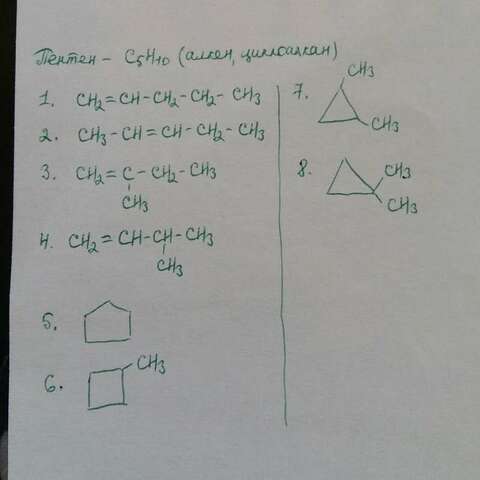 Пентен - C5H10 (алкен, циклоалкан)
1. CH2=CH-CH2-CH2-CH3
2. CH3-CH=CH-CH2-CH3
3. CH2=C-CH2-CH3
CH3
4. CH2=CH-CH-CH3
CH3
5.
6. CH3
7. CH3
CH3
8. CH3
CH3